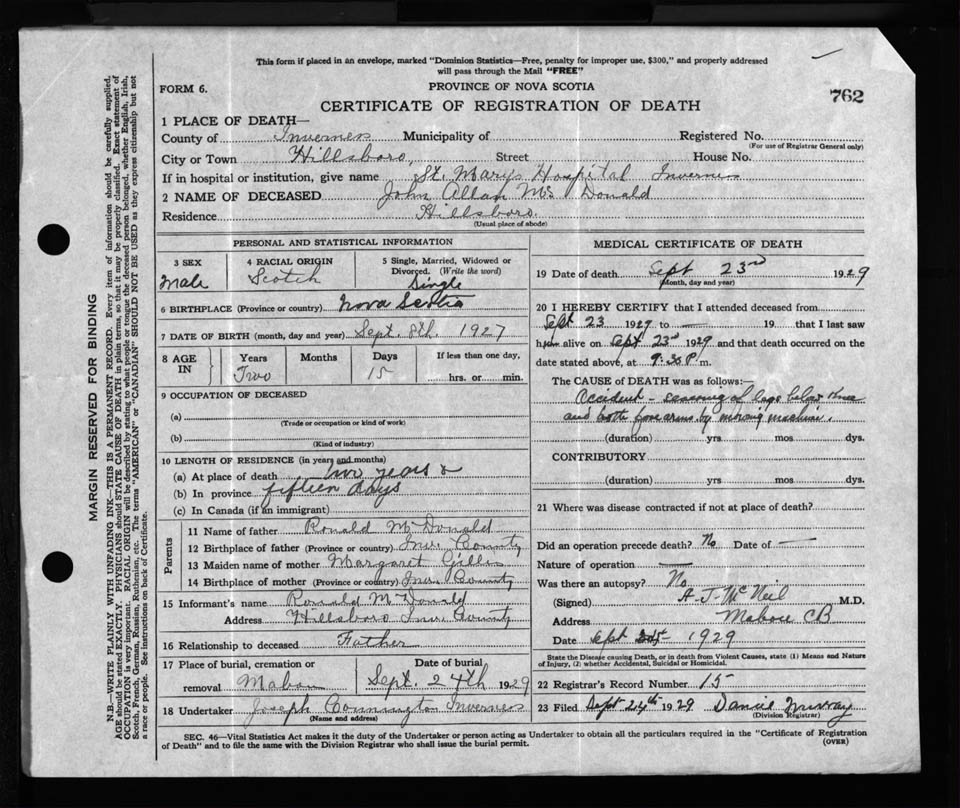 This form if placed in an envelope, marked "Dominion Statistics—Free, penalty for improper use, $300," and properly addressed
will pass through the Mail "FREE"
FORM 6.
PROVINCE OF NOVA SCOTIA
762
CERTIFICATE OF REGISTRATION OF DEATH
1 PLACE OF DEATH—
County of Inverness Municipality of Registered No.
(For use of Registrar General only)
City or Town Hillsboro, Street House No.
If in hospital or institution, give name St. Marys Hospital Inverness
2 NAME OF DECEASED John Allan Mc Donald
Residence Hillsboro.
(Usual place of abode)
PERSONAL AND STATISTICAL INFORMATION
3 SEX 4 RACIAL ORIGIN 5 Single, Married, Widowed or
Divorced. (Write the word)
Male Scotch Single
6 BIRTHPLACE (Province or country) Nova Scotia
7 DATE OF BIRTH (month, day and year) Sept. 8th. 1927
8 AGE IN Years Months Days If less than one day,
Two 15 hrs. or min.
9 OCCUPATION OF DECEASED
(a)
(Trade or occupation or kind of work)
(b)
(Kind of industry)
10 LENGTH OF RESIDENCE (in years and months)
(a) At place of death two years &
(b) In province fifteen days
(c) In Canada (if an immigrant)
Parents
11 Name of father Ronald McDonald
12 Birthplace of father (Province or country) Inv. County
13 Maiden name of mother Margaret Gillis
14 Birthplace of mother (Province or country) Inv. County
15 Informant's name Ronald McDonald
Address Hillsboro Inv. County
16 Relationship to deceased Father
17 Place of burial, cremation or Date of burial
removal Mabou Sept. 24th 1929
18 Undertaker Joseph Inverness
(Name and address)
MEDICAL CERTIFICATE OF DEATH
19 Date of death Sept 23rd 1929
(Month, day and year)
20 I HEREBY CERTIFY that I attended deceased from
Sept 23 1929 to — 19 that I last saw
h alive on Sept 23rd 1929 and that death occurred on the
date stated above, at 9:30 P.m.
The CAUSE OF DEATH was as follows:—
Accident - of legs below knee
and both forearms by mowing machine.
(duration) yrs. mos. dys.
CONTRIBUTORY
(duration) yrs. mos. dys.
21 Where was disease contracted if not at place of death?
Did an operation precede death? No Date of —
Nature of operation —
Was there an autopsy? No
(Signed) A. J. McNeil M.D.
Address Mabou CB
Date Sept 1929
State the Disease causing Death, or in death from Violent Causes, state (1) Means and Nature
of Injury, (2) whether Accidental, Suicidal or Homicidal.
22 Registrar's Record Number 15
23 Filed Sept 24th 1929 Daniel Murray
(Division Registrar)
SEC. 46—Vital Statistics Act makes it the duty of the Undertaker or person acting as Undertaker to obtain all the particulars required in the "Certificate of Registration
of Death" and to file the same with the Division Registrar who shall issue the burial permit.
(OVER)
MARGIN RESERVED FOR BINDING
N.B.—WRITE PLAINLY WITH UNFADING INK—THIS IS A PERMANENT RECORD. Every item of information should be carefully supplied.
AGE should be stated EXACTLY. PHYSICIANS should STATE CAUSE OF DEATH in plain terms, so that it may be properly classified. Exact statement of
OCCUPATION is very important. RACIAL ORIGIN will be described by stating to what people or tongue the deceased person belonged, whether English, Irish,
Scotch, French, German, Russian, Ruthenian, etc. The terms "AMERICAN" or "CANADIAN" SHOULD NOT BE USED as they express citizenship but not
a race or people. See instructions on back of Certificate.